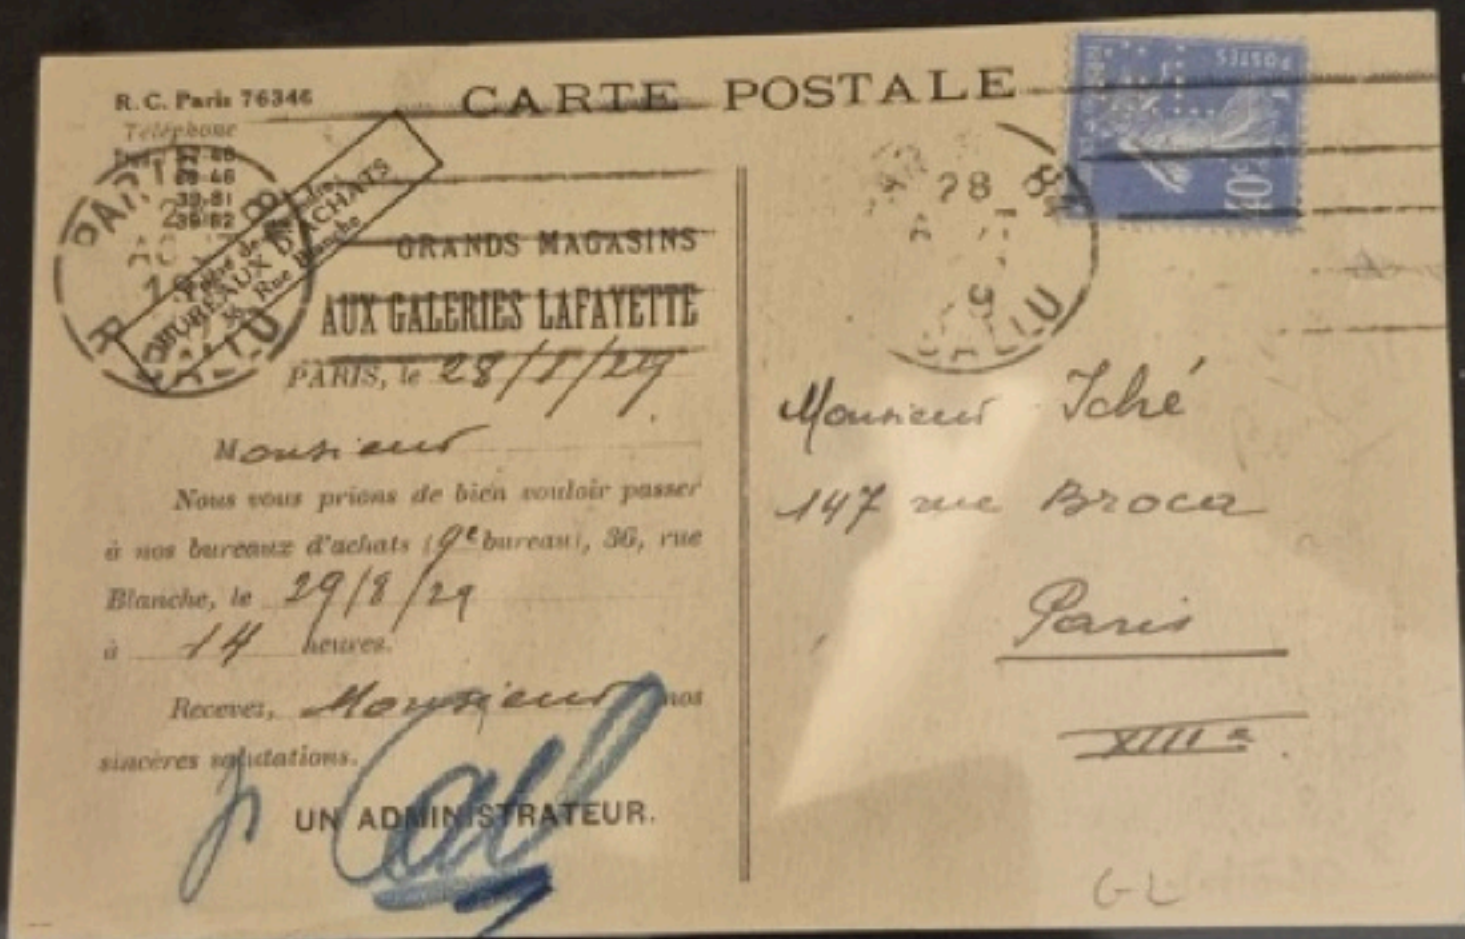 CARTE POSTALE
R. C. Paris 76346
Téléphone
39-81
39-82
BUREAUX D'ACHATS
36, Rue Blanche
GRANDS MAGASINS
AUX GALERIES LAFAYETTE
PARIS, le 28/8/29
Monsieur
Nous vous prions de bien vouloir passer
à nos bureaux d'achats (9e bureau), 36, rue
Blanche, le 29/8/29
à 14 heures.
Recevez, Monsieur nos
sincères salutations.
UN ADMINISTRATEUR.
POSTES
40c
PARIS
28
BALLU
Monsieur Iché
147 rue Broca
Paris
XIIIe
GL